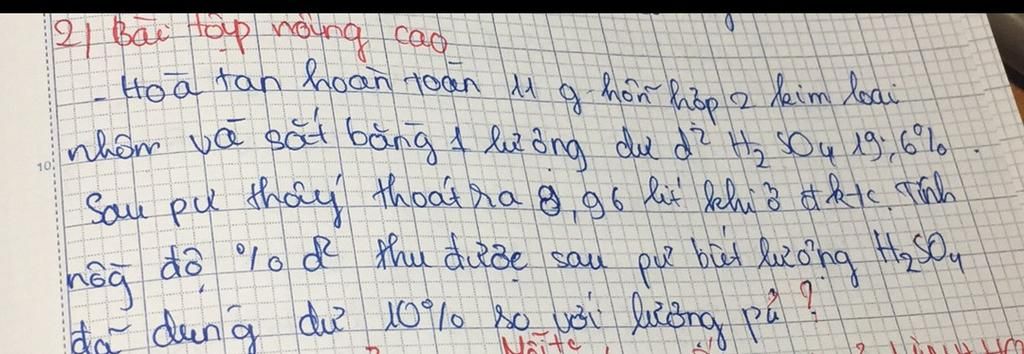 2) Bài tập nâng cao
- Hoà tan hoàn toàn 11 g hỗn hợp 2 kim loại
nhôm và sắt bằng 1 lượng dư d² H₂SO₄ 19,6%.
Sau pư thấy thoát ra 8,96 lít khí ở đktc. Tính
nồg độ % d² thu được sau pư biết lượng H₂SO₄
đã dùng dư 10% so với lượng pư?
10